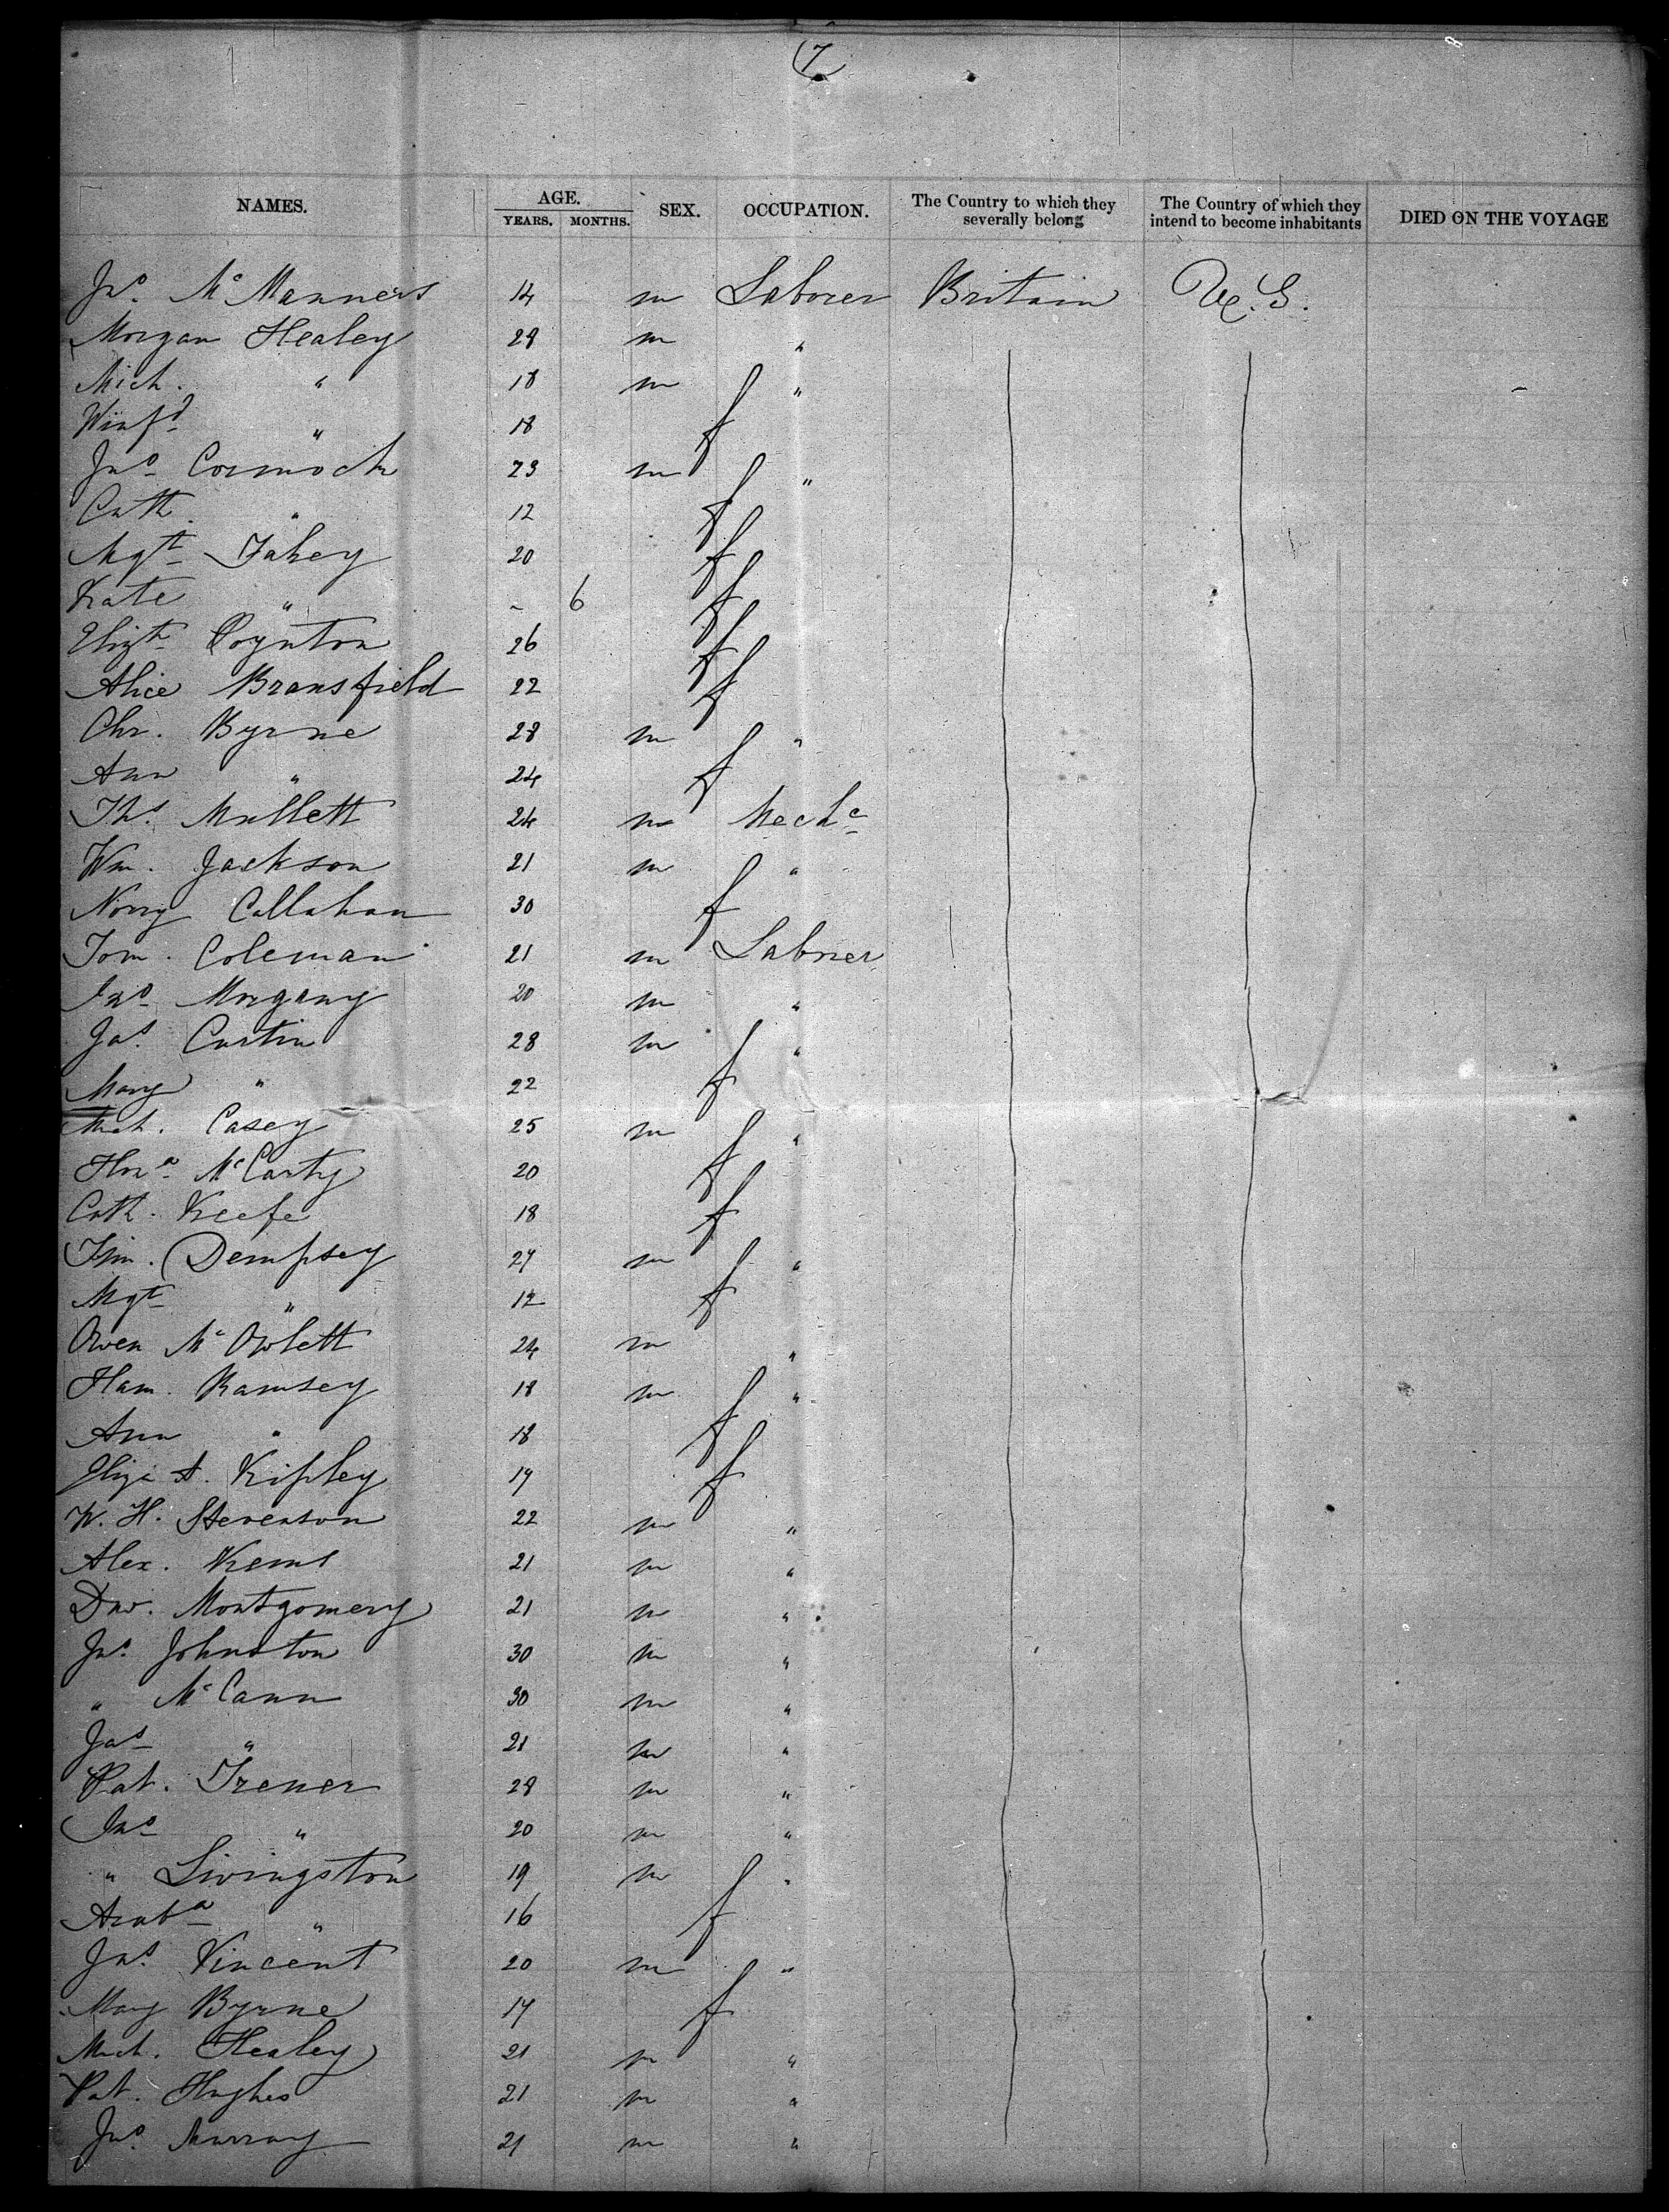 7
NAMES. AGE. YEARS. MONTHS. SEX. OCCUPATION. The Country to which they severally belong The Country of which they intend to become inhabitants DIED ON THE VOYAGE
Jno. McManners 14 m Laborer Britain U.S.
Morgan Healey 28 m "
Mich. " 18 m "
Winfd " 18 f
Jno Cormock 23 m "
Cath. " 12 f
Mgt Fahey 20 f
Kate " - 6 f
Elizth Poynton 26 f
Alice Bransfield 22 f
Chr. Byrne 28 m "
Ann " 24 f
Ths. Mullett 24 m Mechc
Wm. Jackson 21 m "
Norry Callahan 30 f
Tom. Coleman 21 m Laborer
Jno Morgany 20 m "
Jas. Curtin 28 m "
Mary " 22 f
Mich. Casey 25 m "
Hona McCarty 20 f
Cath. Keefe 18 f
Tim. Dempsey 27 m "
Mgt " 12 f
Owen McOwlett 24 m "
Ham. Ramsey 18 m "
Ann " 18 f
Eliza A. Kipley 17 f
W. H. Stevenson 22 m "
Alex. 21 m "
Dav. Montgomery 21 m "
Jno. Johnston 30 m "
" McCann 30 m "
Jas " 21 m "
Pat. Trener 28 m "
Jno " 20 m "
" Livingston 19 m "
Araba " 16 f
Jas. Vincent 20 m "
Mary Byrne 17 f
Mich. Healey 21 m "
Pat. Hughes 21 m "
Jno. Murray 21 m "